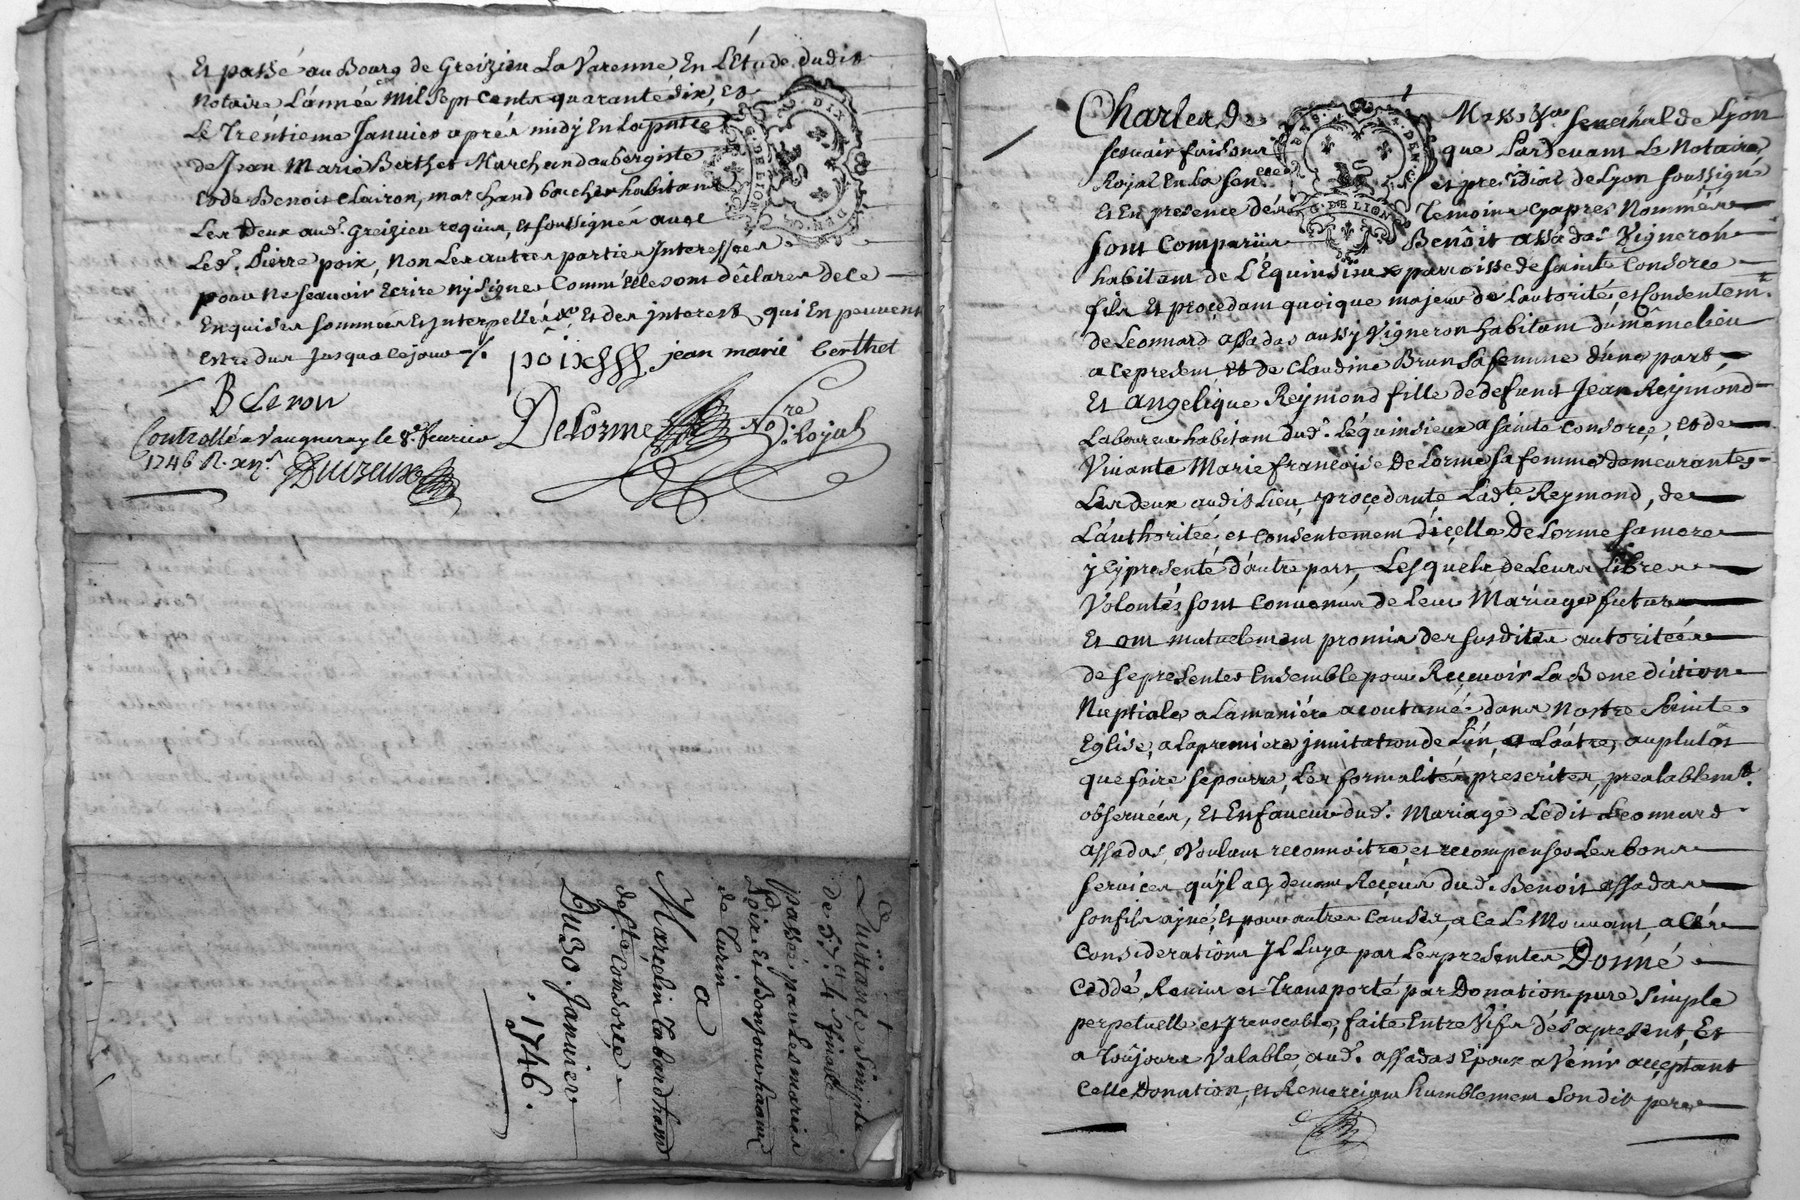 Et passé au Bourg de Greizieu La Varenne En L'Étude dudit
Notaire L'année Mil Sept Cents quarante Six, Et
Le Trentieme Janvier après midy En La pntce
de Jean Marie Berthet Marchand aubergiste
Et de Benoit Cleiron, marchand boucher habitant
Les deux aud. Greizieu requis, et soussignés avec
Led. Pierre poix, Non Les autres parties Interessées
pour Ne sçavoir Ecrire ny Signer Comm' Elles ont déclaré de ce
Enquises sommées Et Interpellées Et des interest qui En peuvent
Estre dus Jusqu'a ce jour
poix jean marie berthet
B Cleron
DeLorme No.re Royal
Controllé a Vaugneray le 8e feurier
1746 R. xn s
Duvreux
Quittance Simple
de 57 lt 4 s
passée par Les mariés
Poix Et Bonjour
de Turin
a
Marcelin Tabard
de Ste Consorce
Du 30. Janvier
1746.
G. DE LION
Charles de Mass Yon senechal de Lyon
sçavoir faisons que Pardevant Le Notaire
Royal En La Sen.cee et presidial de Lyon soussigné
Et En presence des Temoins cy apres Nommés
sont Comparüs Benoît assadas Vigneron
habitant de L'Équinsieux parroisse de sainte Consorce
fils Et procedant quoique majeur de L'autorité, et Consentem.t
de Leonnard assadas aussy Vigneron habitant du même lieu
a ce present Et de Claudine Brun sa femme d'une part
Et angelique Reymond fille de defunt Jean Reymond
Laboureur habitant dud. Léquinsieux a sainte Consorce, et de
Vivante Marie françoise DeLorme sa femme demeurantes
Les deux audit Lieu, procedante Lad.te Reymond, de
L'authoritée, et Consentement d'icelle DeLorme sa mere
ycy presente d'autre part, Lesquels de Leurs Libres
Volontés sont Convenus de Leur Mariage futur
Et ont mutuelement promis des susdites autoritées
de se presenter Ensemble pour Recevoir La Benediction
Nuptiale a La maniére acoutumée dans Nostre Sainte
Eglise, a La premiere jnvitation de L'un, et L'autre, au plutost
que faire se pourra, Les formalités prescrites, prealablem.t
observées, Et En faveur dud. Mariage Ledit Leonnard
assadas, Voulant reconnoitre, et recompenser Les bons
services qu'jl a cy devant Reçeus dud. Benoit assadas
son fils ajné, Et pour autres Causes, a ce Le Mouvant, a Ces
Considerations JL Luy a par Les presentes Donné
Ceddé, Remis et Transporté par Donation pure Simple
perpetuelle et jrrevocable, faite Entre Vifs dés apresent, Et
a Toûjours Valable, aud. assadas Epoux a Venir acceptant
Cette Donation, et Remerciant humblement Son dit pere